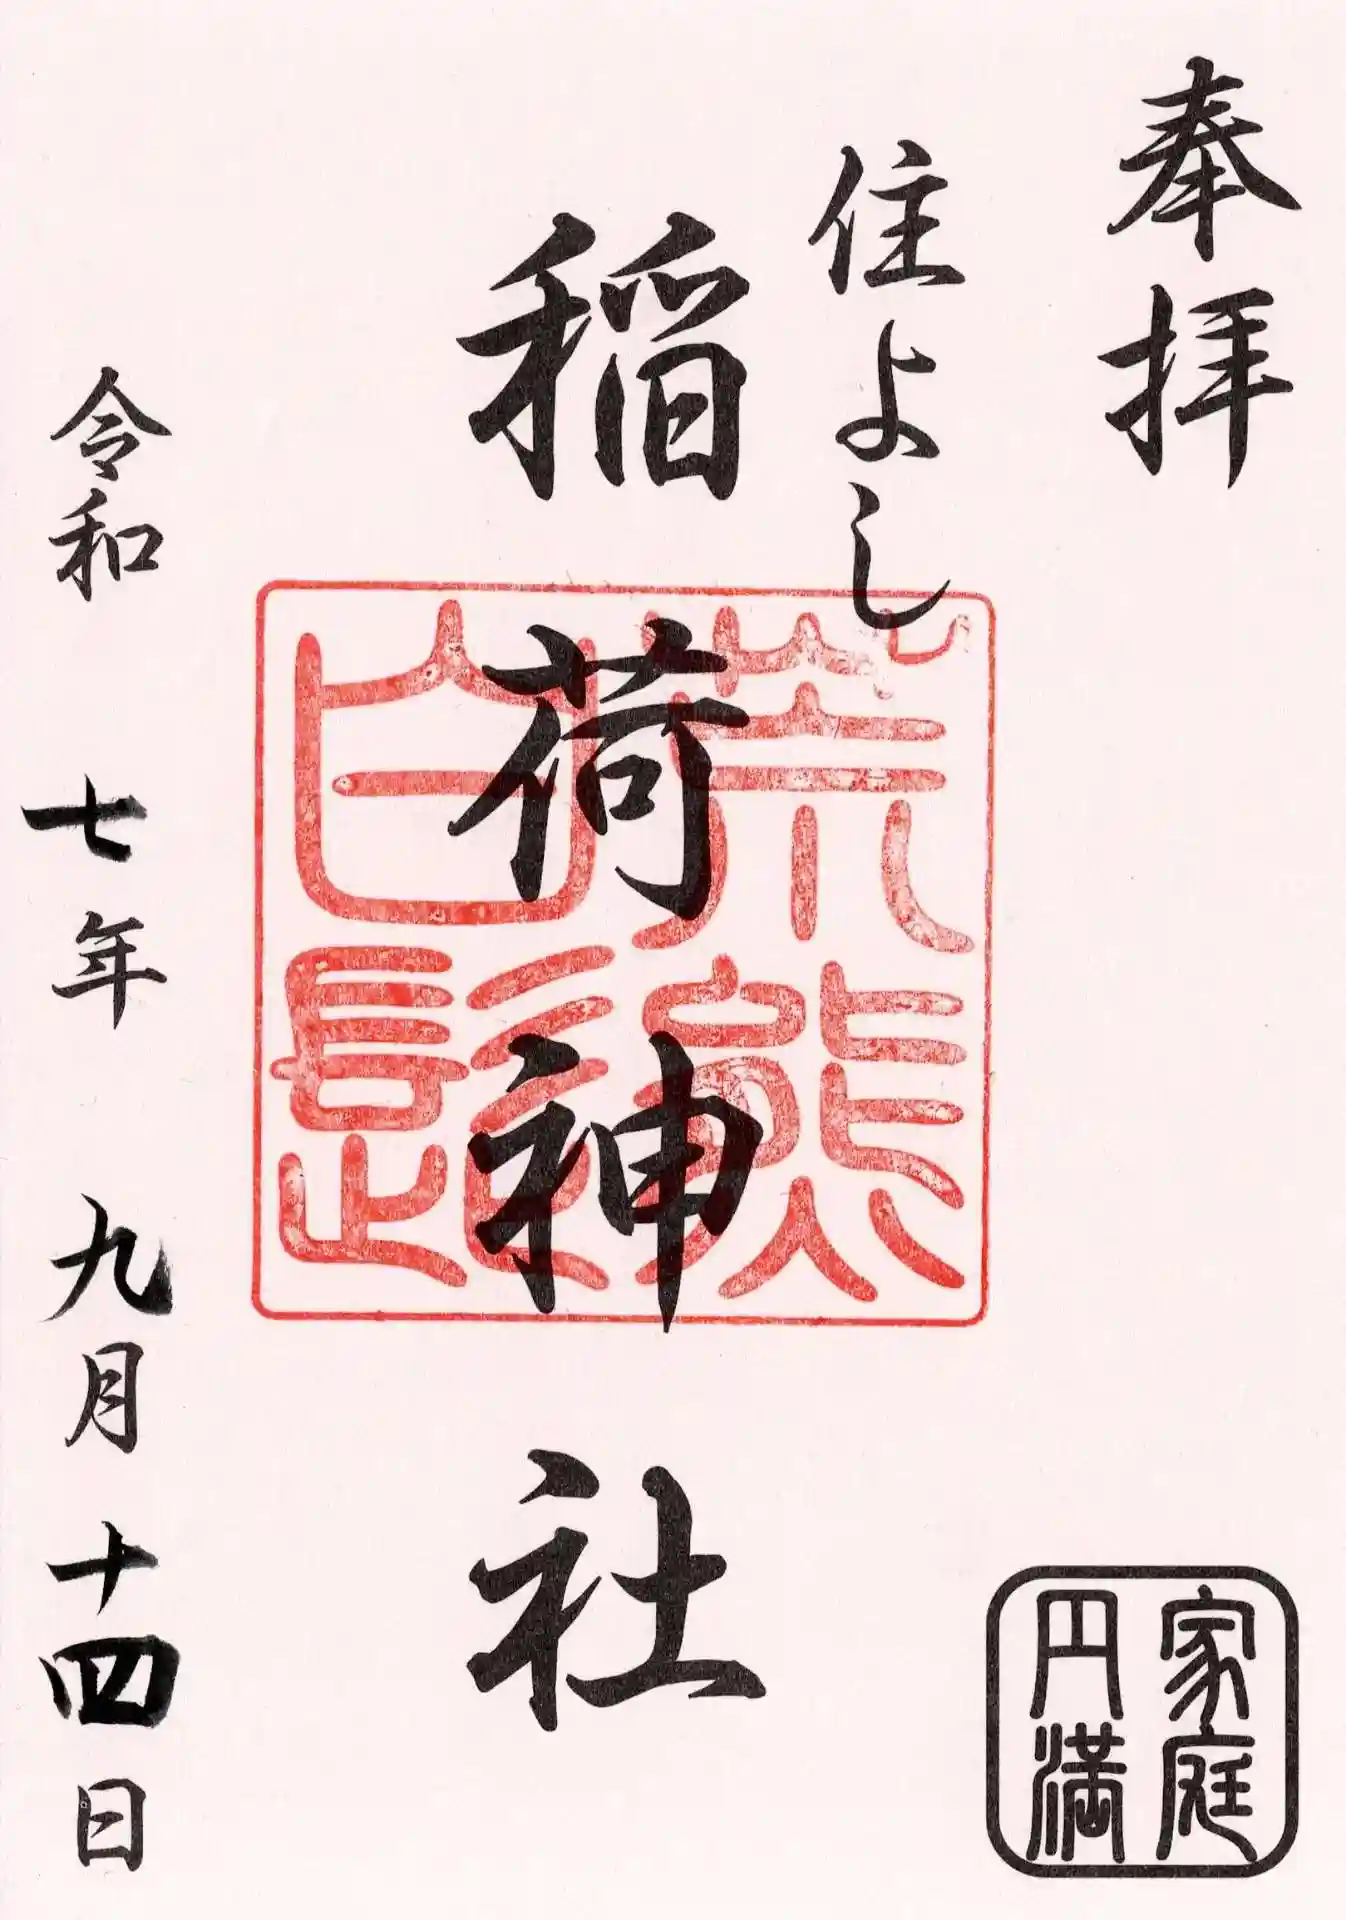 奉拝
住よし
稲荷神社
荒熊
白髭
令和 七年 九月十四日
家庭
円満